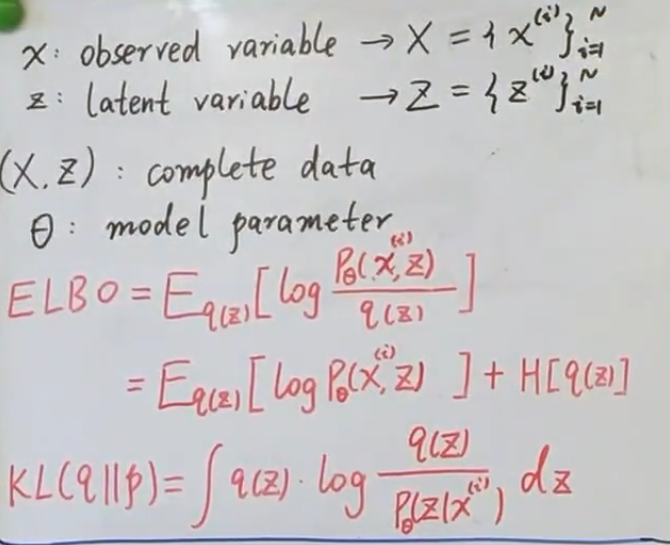 x: observed variable → X = {x^(i)}_{i=1}^N
z: latent variable → Z = {z^(i)}_{i=1}^N
(X, Z): complete data
θ: model parameter
ELBO = E_{q(z)}[log \frac{P_θ(x^{(i)}, z)}{q(z)}]
= E_{q(z)}[log P_θ(x^{(i)}, z)] + H[q(z)]
KL(q||p) = ∫ q(z) · log \frac{q(z)}{P_θ(z|x^{(i)})} dz